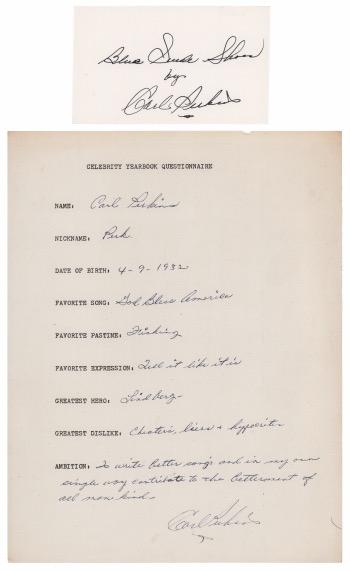 Blue Suede Shoes
by
Carl Perkins
CELEBRITY YEARBOOK QUESTIONNAIRE
NAME: Carl Perkins
NICKNAME: Perk
DATE OF BIRTH: 4-9-1932
FAVORITE SONG: God Bless America
FAVORITE PASTIME: Fishing
FAVORITE EXPRESSION: Tell it like it is
GREATEST HERO: Lindberg
GREATEST DISLIKE: Cheaters, liers + hypocrites
AMBITION: To write better songs and in my own
single way contribute to the betterment of
all man kind.
Carl Perkins